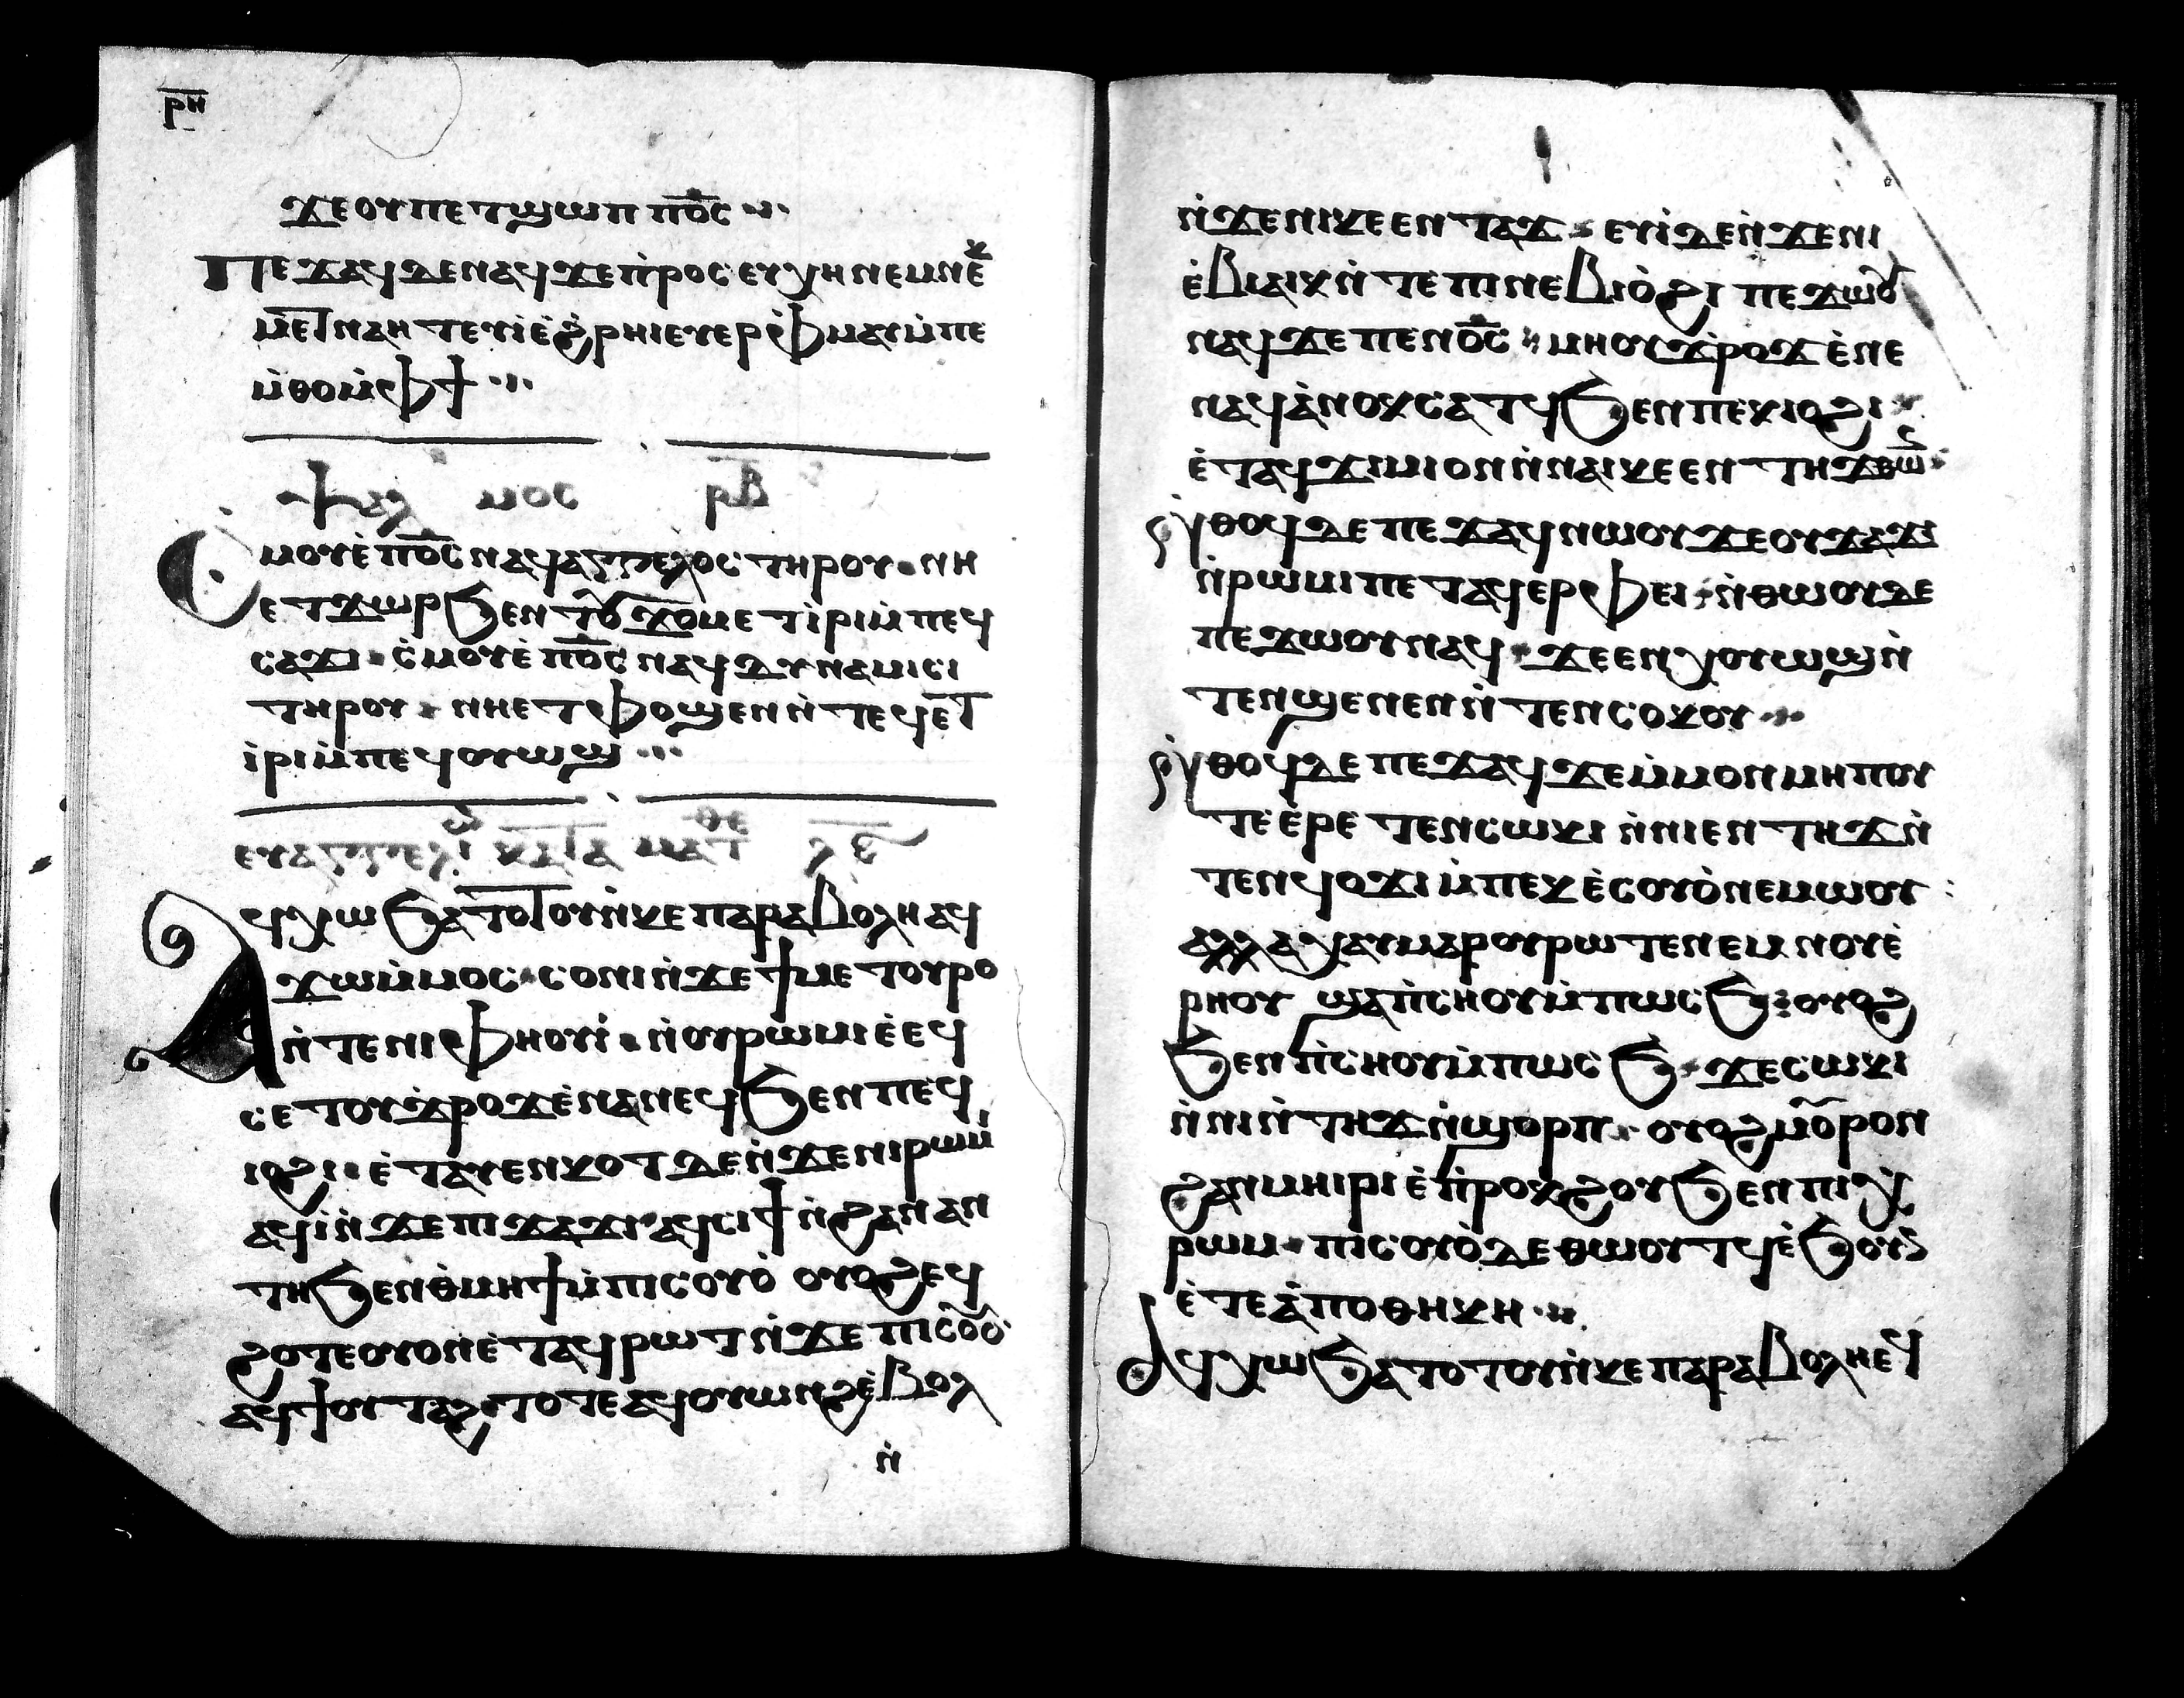 ⲣⲏ
ϫⲉ ⲟⲩ ⲡⲉⲧϣⲱⲡ ⲡ̅ⲟ̅ⲥ̅
Ⲡⲉϫⲁϥ ⲇⲉ ⲛⲁϥ ϫⲉ ⲛ̀ⲣⲟⲥⲉⲩⲭⲏ ⲛⲉⲙ ⲛⲉⲕ
ⲙⲉⲧⲛⲁⲏⲧ ⲉⲩⲓ̀ ⲉ̀ϩⲣⲏⲓ ⲉⲩⲉⲣⲫⲙⲉⲩⲓ̀ ⲙ̀ⲡⲉ
ⲙ̀ⲑⲟ ⲙ̀ⲫϯ
ⲯⲁⲗⲙⲟⲥ ⲣⲃ
Ⲥⲙⲟⲩ ⲉ̀ⲡ̅ⲟ̅ⲥ̅ ⲛⲉϥⲁⲅⲅⲉⲗⲟⲥ ⲧⲏⲣⲟⲩ ⲛⲏ
ⲉⲧϫⲱⲣ ϧⲉⲛ ⲧⲟⲩϫⲟⲙ ⲉⲧⲓ̀ⲣⲓ ⲙ̀ⲡⲉϥ
ⲥⲁϫⲓ ⲥ̀ⲙⲟⲩ ⲉ̀ⲡ̅ⲟ̅ⲥ̅ ⲛⲉϥⲇⲩⲛⲁⲙⲓⲥ
ⲧⲏⲣⲟⲩ ⲛⲏ ⲉⲧⲫⲟϣⲉⲛ ⲛ̀ⲧⲉϥ ⲉⲧ
ⲓ̀ⲣⲓ ⲙ̀ⲡⲉϥⲟⲩⲱϣ
ⲉⲩⲁⲅⲅⲉⲗⲓⲟ ⲕⲁⲧⲁ ⲙⲁⲧⲑⲉ
Ⲁϥⲭⲱ ϧⲁⲧⲟⲧⲟⲩ ⲛ̀ⲕⲉⲡⲁⲣⲁⲃⲟⲗⲏ ⲁϥ
ϫⲱ ⲙ̀ⲙⲟⲥ ⲥⲟⲛⲓ ⲛ̀ϫⲉ ϯⲙⲉⲧⲟⲩⲣⲟ
ⲛ̀ⲧⲉ ⲛⲓⲫⲏⲟⲩⲓ̀ ⲛ̀ⲟⲩⲣⲱⲙⲓ ⲉ̀ⲉϥ
ⲥⲉⲧ ⲟⲩϫⲣⲟϫ ⲉ̀ⲛⲁⲛⲉϥ ϧⲉⲛ ⲡⲉϥ
ⲓⲟϩⲓ ⲉ̀ⲧⲁⲩⲉⲛⲕⲟⲧ ⲇⲉ ⲛ̀ϫⲉ ⲛⲓⲣⲱⲙⲓ
ⲁϥⲓ̀ ⲛ̀ϫⲉ ⲡⲓϫⲁϫⲓ ⲁϥⲥⲓϯ ⲛ̀ϩⲁⲛⲉⲛ
ⲧⲏϫ ϧⲉⲛ ⲑ̀ⲙⲏϯ ⲙ̀ⲡⲓⲥⲟⲩⲟ̀ ⲟⲩⲟϩ ⲉϥ
ϩⲟⲧⲉ ⲟⲩⲟⲛ ⲉ̀ⲧⲁϥⲣⲱⲧ ⲛ̀ϫⲉ ⲡⲓⲥⲟⲩⲟ
ⲁϥϯⲟⲩⲧⲁϩ ⲧⲟⲧⲉ ⲁϥⲟⲩⲱⲛϩ ⲉ̀ⲃⲟⲗ
ⲛ̀
ⲛ̀ϫⲉ ⲛⲓⲕⲉⲉⲛⲧⲏϫ ⲉⲩⲓ̀ ⲇⲉ ⲛ̀ϫⲉ ⲛⲓ
ⲉ̀ⲃⲓⲁⲓⲕ ⲛ̀ⲧⲉ ⲡⲓⲛⲉⲃⲓⲟ̀ϩⲓ ⲡⲉϫⲱⲟⲩ
ⲛⲁϥ ϫⲉ ⲡⲉⲛⲟ̅ⲥ̅ ⲙⲏ ⲟⲩϫⲣⲟϫ ⲉ̀ⲛⲉ
ⲛⲁϥ ⲁⲛ ⲟⲕⲥⲁⲧϥ ϧⲉⲛ ⲡⲉⲕⲓⲟϩⲓ
ⲉ̀ⲧⲁϥϫⲓⲙⲓ ⲟⲛ ⲛ̀ⲛⲁⲓⲕⲉⲉⲛⲧⲏϫ ⲑⲱ
ⲛ̀ⲑⲟϥ ⲇⲉ ⲡⲉϫⲁϥ ⲛⲱⲟⲩ ϫⲉ ⲟⲩϫⲁϫⲓ
ⲛ̀ⲣⲱⲙⲓ ⲡⲉⲧⲁϥⲉⲣⲫⲉⲓ ⲛ̀ⲑⲱⲟⲩ ⲇⲉ
ⲡⲉϫⲱⲟⲩ ⲛⲁϥ ϫⲉ ⲉⲛⲭⲟⲩⲱϣ ⲛ̀
ⲧⲉⲛϣⲉⲛⲉⲛ ⲛ̀ⲧⲉⲛⲥⲟⲕⲟⲩ
ⲛ̀ⲑⲟϥ ⲇⲉ ⲡⲉϫⲁϥ ϫⲉ ⲙ̀ⲙⲟⲛ ⲙⲏⲡⲟⲩ
ⲧⲉ ⲉ̀ⲣⲉⲧⲉⲛⲥⲱⲕⲓ ⲛ̀ⲛⲓⲉⲛⲧⲏϫ ⲛ̀
ⲧⲉⲛϥⲟϫⲓ ⲙ̀ⲡⲉⲕⲉ̀ⲥⲟⲩⲟ̀ ⲛⲉⲙⲱⲟⲩ
ⲁⲗⲗⲁ ⲭⲁⲩ ⲙⲁⲣⲟⲩⲣⲱⲧ ⲉⲛⲉⲙ ⲛⲟⲩⲉ̀
ⲣⲏⲟⲩ ϣⲁ ⲡ̀ⲥⲏⲟⲩ ⲙ̀ⲡⲱⲥϧ ⲟⲩⲟϩ
ϧⲉⲛ ⲡ̀ⲥⲏⲟⲩ ⲙ̀ⲡⲱⲥϧ ϫⲉ ⲥⲱⲕⲓ
ⲛ̀ⲛⲓⲛ̀ⲧⲏϫ ⲛ̀ϣⲟⲣⲡ ⲟⲩⲟϩ ⲙⲟⲣⲟⲩ
ϩⲁⲛⲙⲏⲓⲣⲓ ⲉ̀ⲡ̀ⲣⲟⲕϩⲟⲩ ϧⲉⲛ ⲡⲓⲭ̀
ⲣⲱⲙ ⲡⲓⲥⲟⲩⲟ̀ ⲇⲉ ⲑⲱⲟⲩⲧϥ ⲉ̀ϧⲟⲩⲛ
ⲉ̀ⲧⲉⲁ̀ⲡⲟⲑⲏⲕⲏ
Ⲁϥⲭⲱ ϧⲁⲧⲟⲧⲟⲩ ⲛ̀ⲕⲉⲡⲁⲣⲁⲃⲟⲗⲏ ⲉϥ